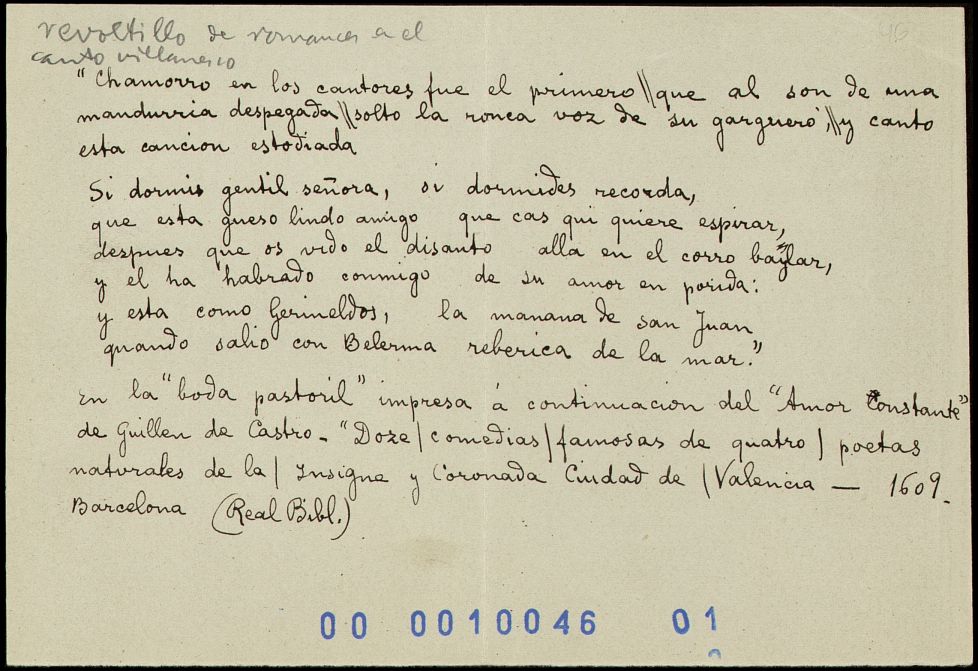 revoltillo de romances en el
canto villanesco
46
"Chamorro en los cantores fue el primero \\ que al son de una
mandurria despegada \\ solto la ronca voz de su garguero, \\ y canto
esta cancion estodiada
Si dormis gentil señora, si dormides recorda,
que esta gueso lindo amigo que cas qui quiere espirar,
despues que os vido el disanto alla en el corro baylar,
y el ha habrado conmigo de su amor en porida:
y esta como Gerineldos, la manana de san Juan
quando salio con Belerma reberica de la mar."
En la "boda pastoril" impresa á continuacion del "Amor Constante"
de Guillen de Castro - "Doze | comedias | famosas de quatro | poetas
naturales de la | Insigne y Coronada Ciudad de | Valencia — 1609.
Barcelona (Real Bibl.)
00 0010046 01